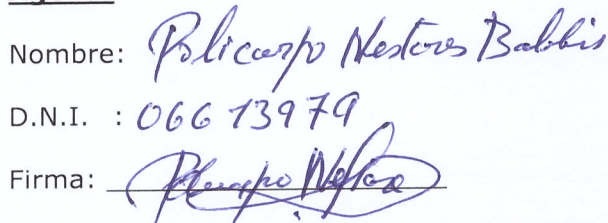 Nombre: Policarpo Nestares Balbis
D.N.I. : 06613979
Firma: Policarpo